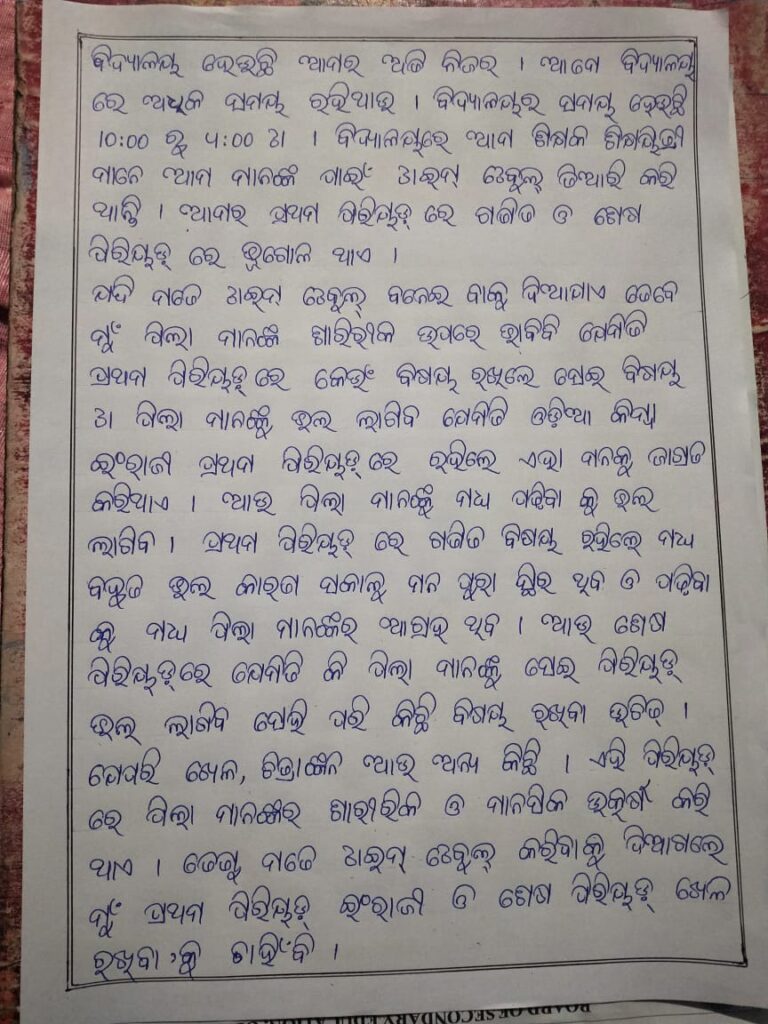 ବିଦ୍ୟାଳୟ ହେଉଛି ଆମର ଅତି ନିଜର । ଆମେ ବିଦ୍ୟାଳୟ
ରେ ଅଧିକ ସମୟ ରହିଥାଉ । ବିଦ୍ୟାଳୟର ସମୟ ହେଉଛି
10:00 ରୁ ୪:00 ଟା । ବିଦ୍ୟାଳୟରେ ଆମ ଶିକ୍ଷକ ଶିକ୍ଷୟିତ୍ରୀ
ମାନେ ଆମ ମାନଙ୍କ ପାଇଁ ଟାଇମ୍ ଟେବୁଲ୍ ତିଆରି କରି
ଥାନ୍ତି । ଆମର ପ୍ରଥମ ପିରିୟଡ୍ ରେ ଗଣିତ ଓ ଶେଷ
ପିରିୟଡ୍ ରେ ଭୂଗୋଳ ଥାଏ ।
ଯଦି ମତେ ଟାଇମ୍ ଟେବୁଲ୍ ବନେଇ ବାକୁ ଦିଆଯାଏ ତେବେ
ମୁଁ ପିଲା ମାନଙ୍କ ଶାରିରୀକ ଉପରେ ଭାବିବି ଯେମିତି
ପ୍ରଥମ ପିରିୟଡ୍ ରେ କେଉଁ ବିଷୟ ରଖିଲେ ସେଇ ବିଷୟ
ଟା ପିଲା ମାନଙ୍କୁ ଭଲ ଲାଗିବ ଯେମିତି ଓଡ଼ିଆ କିମ୍ବା
ଇଂରାଜୀ ପ୍ରଥମ ପିରିୟଡ୍ ରେ ରହିଲେ ଏହା ମନକୁ ଜାଗ୍ରତ
କରିଥାଏ । ଆଉ ପିଲା ମାନଙ୍କୁ ମଧ୍ୟ ପଢ଼ିବା କୁ ଭଲ
ଲାଗିବ । ପ୍ରଥମ ପିରିୟଡ୍ ରେ ଗଣିତ ବିଷୟ ରହିଲେ ମଧ୍ୟ
ବହୁତ ଭଲ କାରଣ ସକାଳୁ ମନ ପୁରା ସ୍ଥିର ଥିବ ଓ ପଢ଼ିବା
କୁ ମଧ୍ୟ ପିଲା ମାନଙ୍କର ଆଗ୍ରହ ଥିବ । ଆଉ ଶେଷ
ପିରିୟଡ୍ ରେ ଯେମିତି କି ପିଲା ମାନଙ୍କୁ ସେଇ ପିରିୟଡ୍
ଭଲ୍ ଲାଗିବ ସେହି ପରି କିଛି ବିଷୟ ରଖିବା ଉଚିତ୍ ।
ଯେପରି ଖେଳ, ଚିତ୍ରାଙ୍କନ ଆଉ ଅନ୍ୟ କିଛି । ଏହି ପିରିୟଡ୍
ରେ ପିଲା ମାନଙ୍କର ଶାରୀରିକ ଓ ମାନସିକ ଉତ୍କର୍ଷ କରି
ଥାଏ । ତେଣୁ ମତେ ଟାଇମ୍ ଟେବୁଲ୍ କରିବାକୁ ଦିଆଗଲେ
ମୁଁ ପ୍ରଥମ ପିରିୟଡ୍ ଇଂରାଜୀ ଓ ଶେଷ ପିରିୟଡ୍ ଖେଳ
ରଖିବା କୁ ଚାହିଁବି ।
BOARD OF SECONDARY EDUCATION